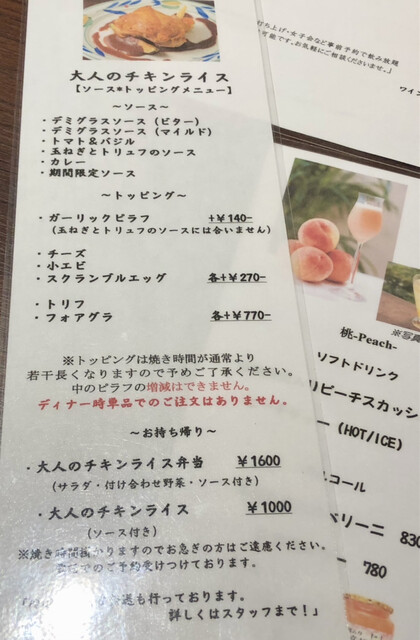 大人のチキンライス
【ソース*トッピングメニュー】
～ソース～
・デミグラスソース（ビター）
・デミグラスソース（マイルド）
・トマト＆バジル
・玉ねぎとトリュフのソース
・カレー
・期間限定ソース
～トッピング～
・ガーリックピラフ +￥140-
（玉ねぎとトリュフのソースには合いません）
・チーズ
・小エビ
・スクランブルエッグ 各+￥270-
・トリフ
・フォアグラ 各+￥770-
※トッピングは焼き時間が通常より
若干長くなりますので予めご了承ください。
中のピラフの増減はできません。
ディナー時単品でのご注文はありません。
～お持ち帰り～
・大人のチキンライス弁当 ￥1600
（サラダ・付け合わせ野菜・ソース付き）
・大人のチキンライス ￥1000
（ソース付き）
※焼き時間掛かりますのでお急ぎの方はご遠慮ください。
でのご予約受けつけております。
送も行っております。
詳しくはスタッフまで！」
打ち上げ・女子会など事前予約で飲み放題
可能です。お気軽にご相談くださいませ。」
ワイン
※写真
桃-Peach-
ソフトドリンク
リピーチスカッシ
ー（HOT/ICE）
コール
ベリーニ 830
780